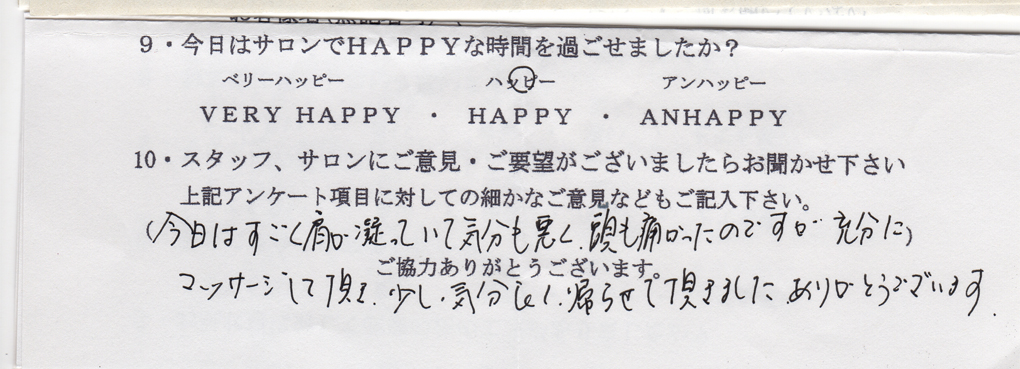 9・今日はサロンでHAPPYな時間を過ごせましたか？
ベリーハッピー ハッピー アンハッピー
VERY HAPPY ・ HAPPY ・ ANHAPPY
10・スタッフ、サロンにご意見・ご要望がございましたらお聞かせ下さい
上記アンケート項目に対しての細かなご意見などもご記入下さい。
(今日はすごく肩が凝っていて気分も悪く、頭も痛かったのですが充分に)
ご協力ありがとうございます。
マッサージして頂き、少し気分よく、帰らせて頂きました ありがとうございます.